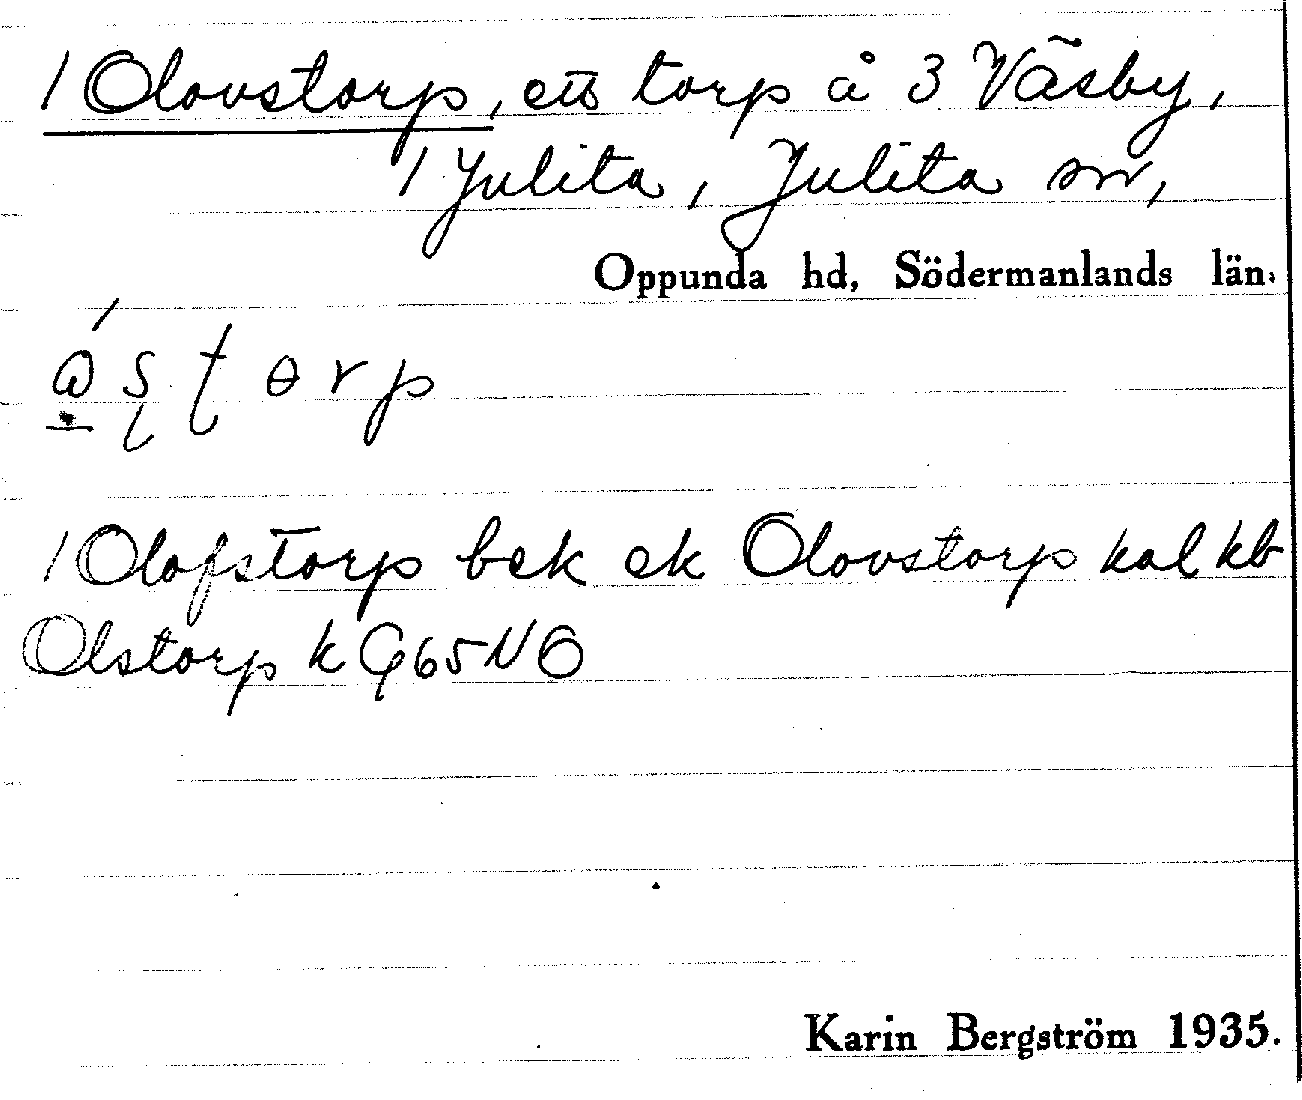 1 Olovstorp, ett torp å 3 Väsby,
1 Julita, Julita sn,
Oppunda hd, Södermanlands län.
1 Olofstorp bek ek Olovstorp kal kb
Olstorp k G65NO
Karin Bergström 1935.